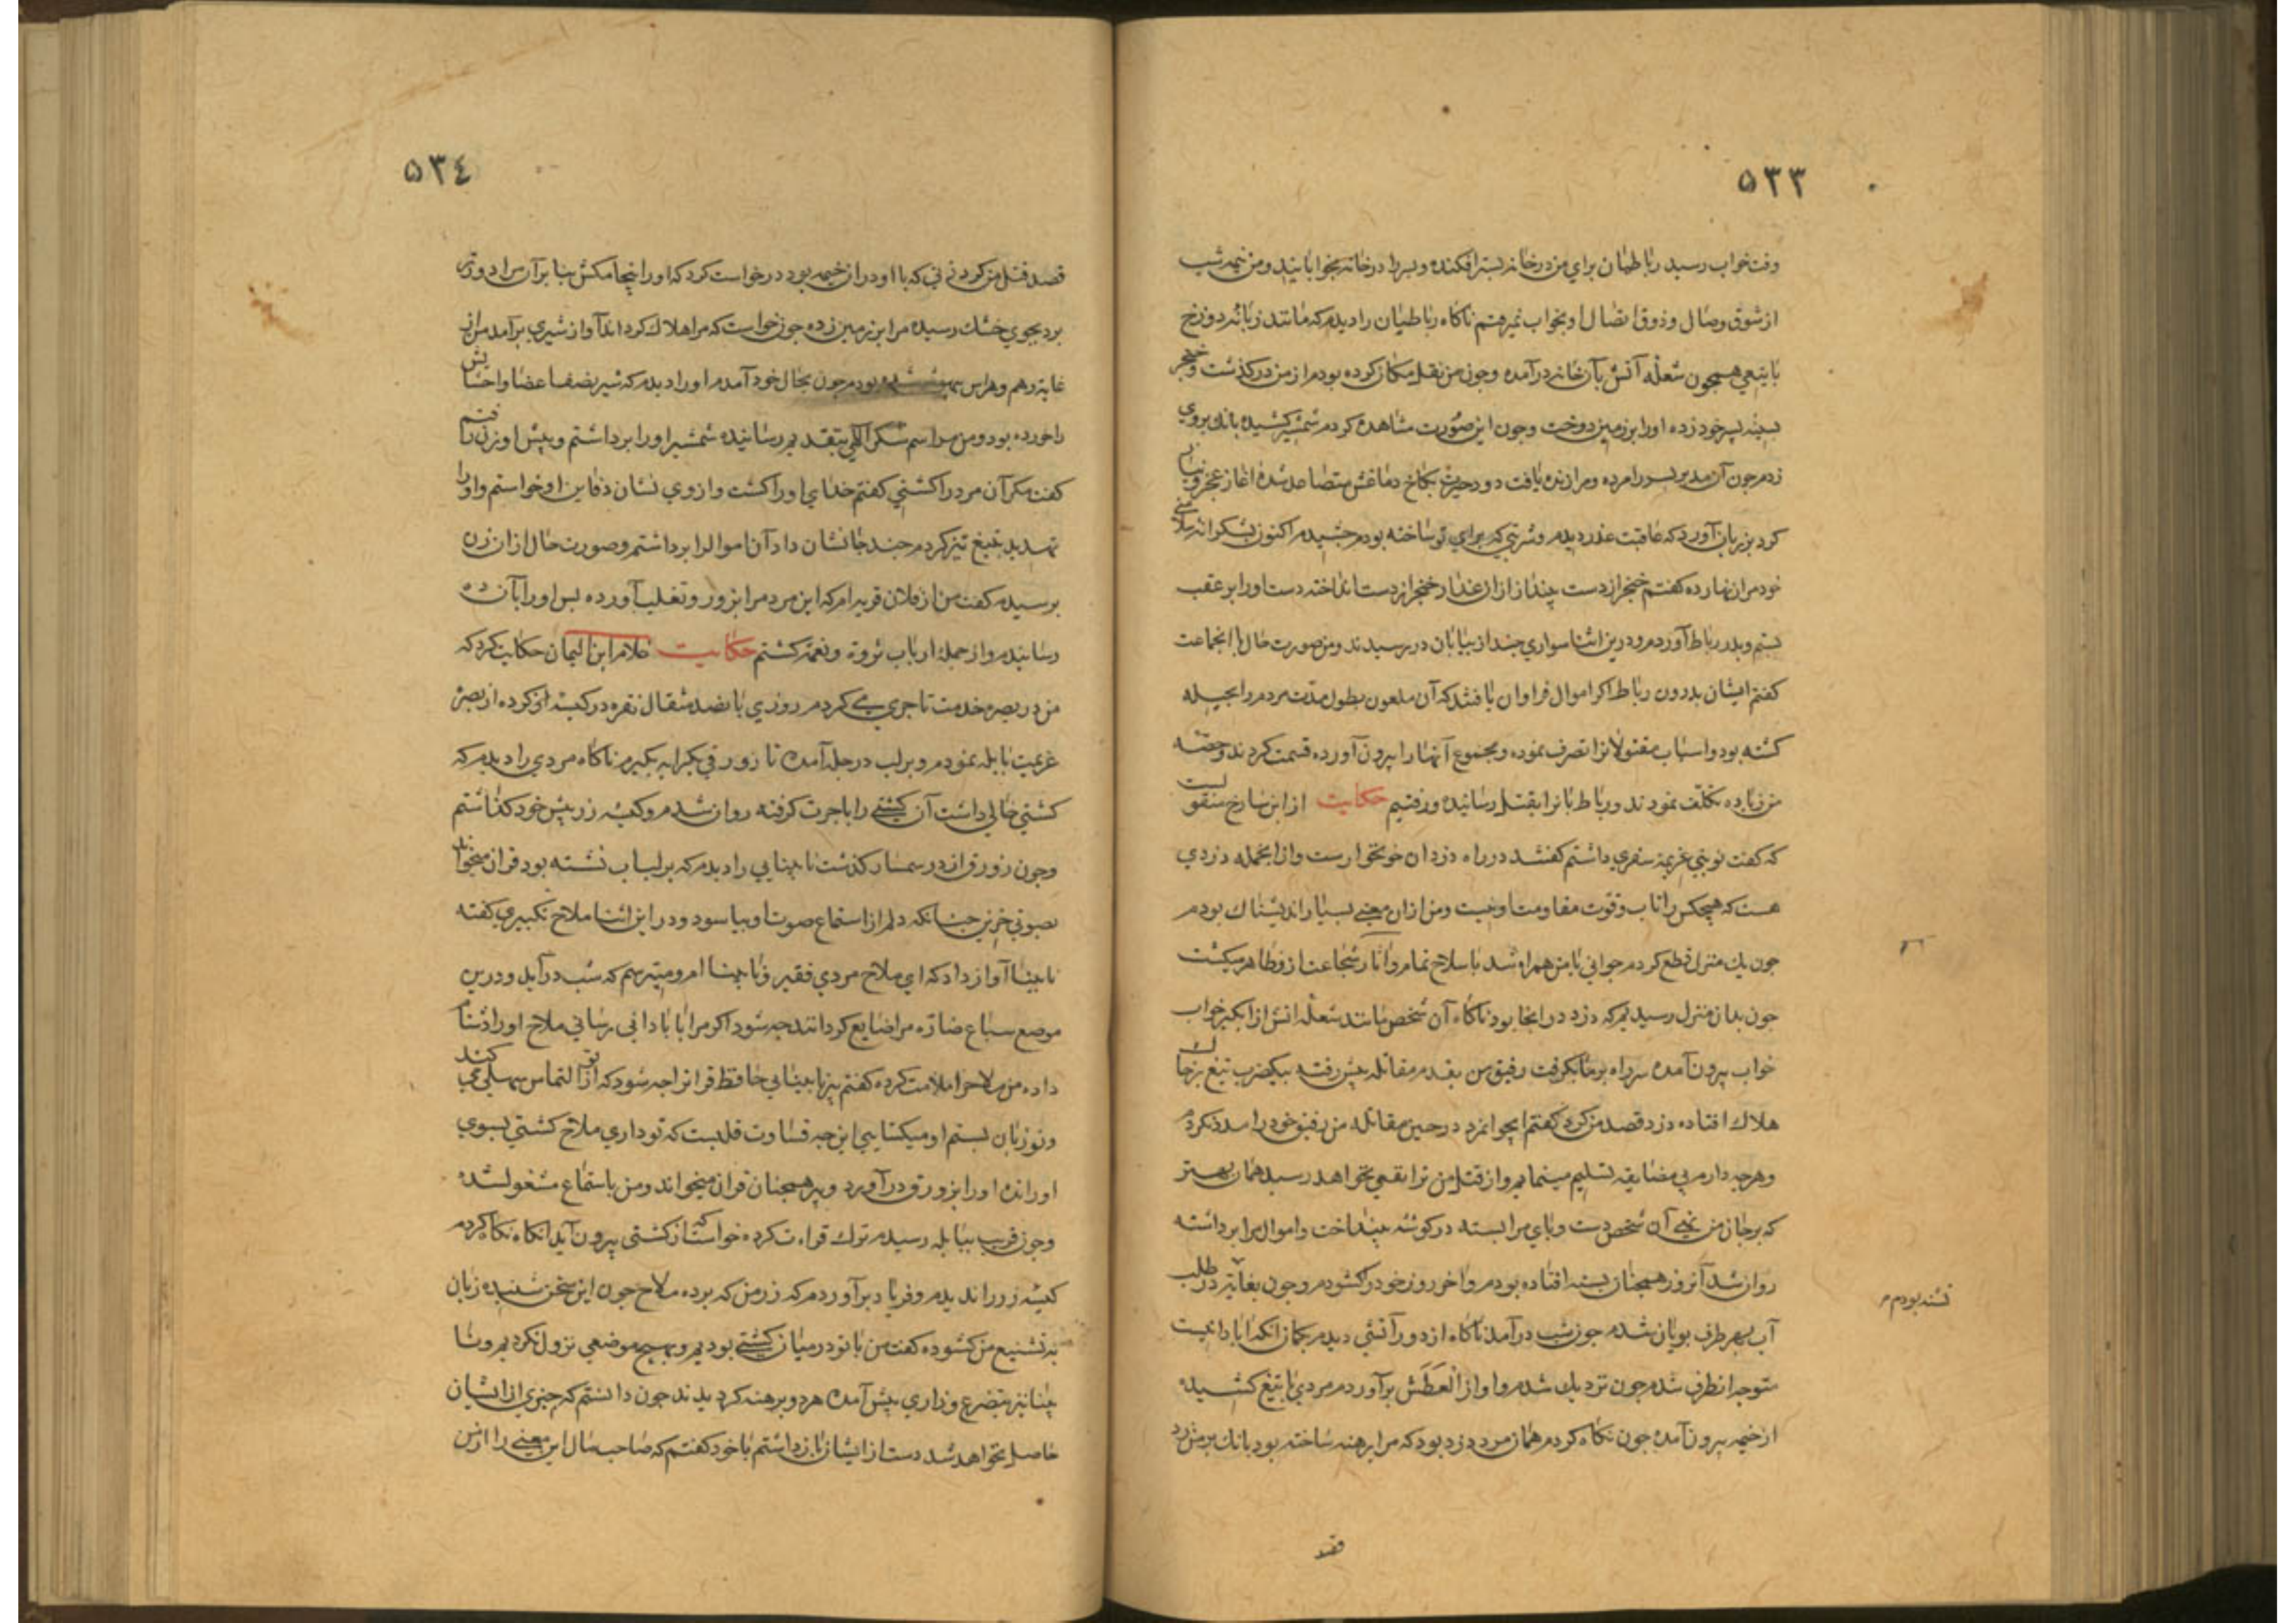 ٥٣٣
وقت خواب رسید رباطبان برای من در خانه بستر افکنده و پسر را در خانه بخوابانید و من نیمه شب
از شوق وصال و ذوق اتصال او بخواب نمیرفتم ناکاه رباطبان را دیدم که مانند زبانه دوزخ
با تیغی همچون شعله آتش بآن خانه درآمده وچون من نقل مکان کرده بودم از من درکذشت و خنجر
بسینه پسر خود زده اورا بر زمین دوخت وچون این صورت مشاهده کردم شمشیر کشیده بانک بروی
زدم چون آن مدبر پسر را مرده و مرا زنده یافت دود حیرت بکاخ دماغش متصاعد شده آغاز عجز و نیاز
کرد بر زبان آورد که عاقبت غدر دیدم و شربتی که برای تو ساخته بودم چشیدم اکنون بشکرانه سلامتی
خود مرا زنهار ده کفتم خنجر از دست بینداز ازان غدار خنجر از دست انداخته دست اورا بر عقب
بستم و بدر رباط آوردم و درین اثنا سواری چند از بیابان در رسیدند و من صورت حال با انجماعت
کفتم ایشان بدرون رباط اکر اموال فراوان یافتند که آن ملعون بطول مدت مردم را بحیله
کشته بود و اسباب مقتولانرا تصرف نموده و مجموع آنها را بیرون آورده قسمت کردند و حصّه
من زیاده تکلف نمودند و رباط بانرا بقتل رسانیده ورفتیم حکایت از ابن سارخ منقولست
که کفت نوبتی عزیمة سفری داشتم کفتند در راه دزدان خونخوارست و از انجمله دزدی
هست که هیچکس را تاب و قوت مقاومت او نیست و من ازان معنی بسیار اندیشناک بودم
چون یک منزل قطع کردم جوانی با من همراه شد با سلاح تمام و آثار شجاعت از و ظاهر میکشت
چون بدان منزل رسیدیم که دزد در انجا بود ناکاه آن شخص مانند شعله اتش از انکیز خواب
خواب بیرون آمده سر راه بر ما بکرفت رفیق من بقدم مقاتله پیش رفت بیکضرب تیغ بر خاک
هلاک افتاده دزد قصد من کرد کفتم ایجوانمرد در حین مقاتله من رفیق خود را مدد نکردم
وهرچه دارم بی مضایقه تسلیم مینمایم و از قتل من ترا نفعی نخواهد رسید همان بهتر
که بر جان من نهی آن شخص دست و پای مرا بسته در کوشه بینداخت و اموال مرا برداشته
روان شد آنروز همچنان بسته افتاده بودم و آخر روز خود را کشودم وچون بغایة در طلب
تشنه بودم م
آب بهر طرف پویان شدم چون شب درآمد ناکاه از دور آتشی دیدم بکمان انکه آبادانیست
متوجه انطرف شدم چون نزدیک شدم و اواز العطش برآوردم مردی با تیغ کشیده
از خیمه بیرون آمده چون نکاه کردم همان مرد دزد بود که مرا برهنه ساخته بود بانک بر من زد
قصد
٥٣٤
قصد قتل من کرد زنی که با او در ان خیمه بود درخواست کرد که اورا اینجا مکش بنا بر آن مرا دورتر
برد بجوی خشک رسیده مرا بر زمین زده چون خواست که مرا هلاک کرداند آواز شیری برآمد من از
غایة وهم وهراس بیهوش شده بودم چون بحال خود آمدم اورا دیدم که شیر نصف اعضا و احشایش
را خورده بود و من مراسم شکر الهی بتقدیم رسانیده شمشیر اورا برداشتم و پیش او زن رفتم
کفت مکر آن مرد را کشتی کفتم خدای اورا کشت و از وی نشان دفاین او خواستم و اورا
تهدید بتیغ تیز کردم چند جا نشان داد آن اموال را برداشتم و صورت حال از ان زن
پرسیدم کفت من از فلان قریه ام که این مرد مرا بزور و تغلب آورده پس اورا بآن ده
رسانیدم و از جمله ارباب ثروة و نعمة کشتم حکایت غلام ابن الیمان حکایت کرد که
من در بصره خدمت تاجری می کردم روزی پانصد مثقال نقره در کیسه ای کرده از بصره
عزیمت بابله نمودم و بر لب دجله آمده تا زورقی بکرایه بکیرم ناکاه مردی را دیدم که
کشتی خالی داشت آن کشتی را باجرت کرفته روان شدم و کیسه زر پیش خود کذاشتم
وچون زورق از در سمسار کذشت نابینایی را دیدم که بر لب آب نشسته بود قرآن میخواند
بصوتی حزین چنانکه دلم از استماع صوت او بیاسود و در این اثنا ملاح تکبیری کفته
نابینا آواز داد که ای ملاح مردی فقیر و نابینا ام و میترسم که شب درآید و درین
موضع سباع ضاره مرا ضایع کردانند چه شود اکر مرا بابادانی رسانی ملاح اورا دشنام
داده من ملاح را ملامت کرده کفتم پیر نابینایی حافظ قرانرا چه شود که از تو التماس سهلی می کند
و تو زبان بستم او میکشایی این چه قساوت قلبست که تو داری ملاح کشتی بسوی
او رانده اورا بزورق درآورد و پیر همچنان قرآن میخواند و من باستماع مشغول شده
وچون قریب بابله رسیدم ترک قراءت کرده خواست که از کشتی بیرون آید انکاه نکاه کردم
کیسه زر را ندیدم و فریاد برآوردم که زر من که برده ملاح چون این سخن شنید زبان
به تشنیع من کشوده کفت من با تو در میان کشتی بودیم و بهیچ موضعی نزول نکردیم و نا
بینا نیز بتضرع و زاری پیش آمده هر دو برهنه کردیدند چون دانستم که چیزی از ایشان
حاصل نخواهد شد دست از ایشان بازداشتم با خود کفتم که صاحب مال این معنی را از من